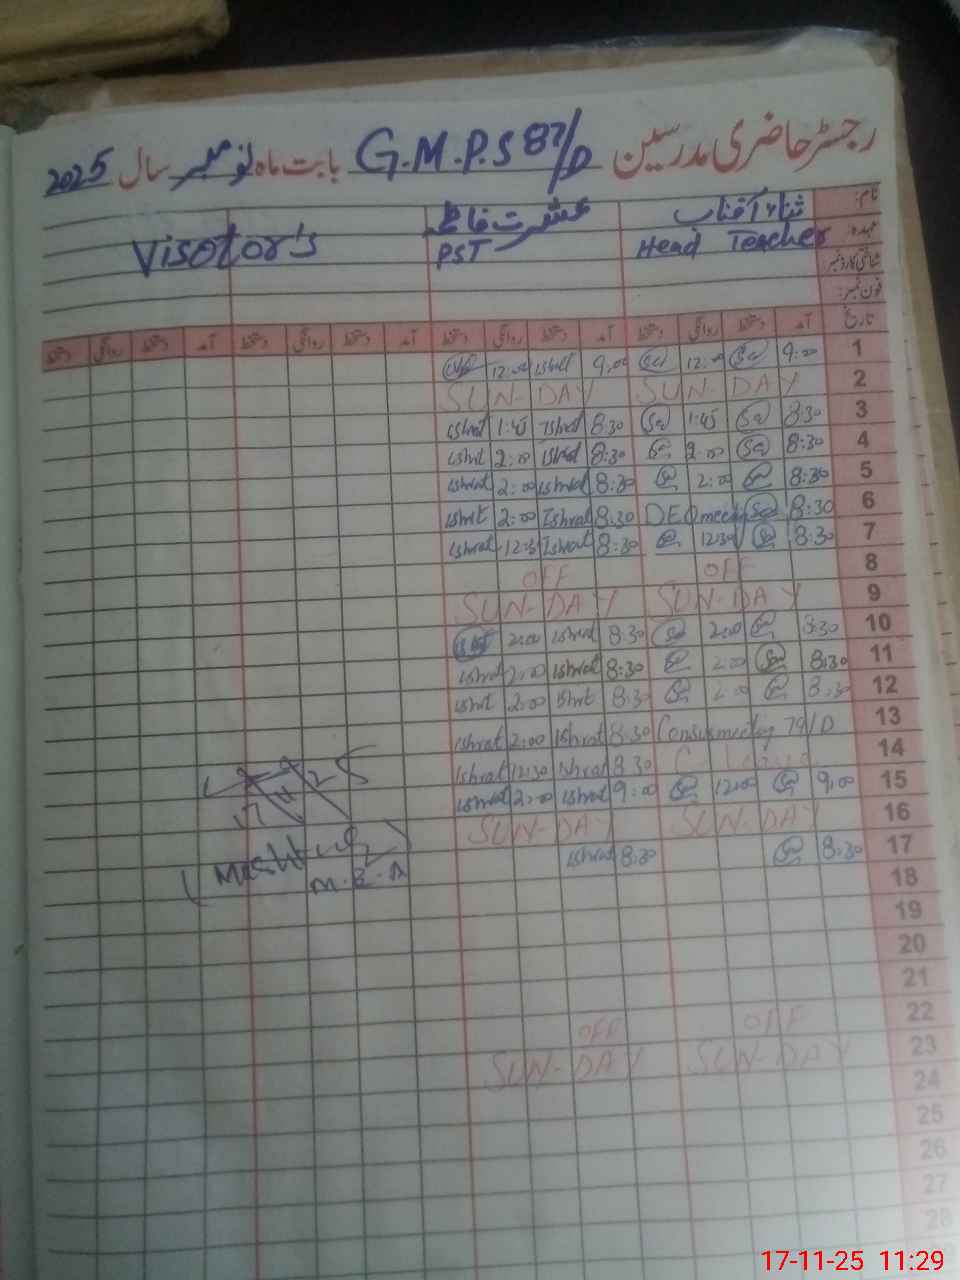 رجسٹر حاضری مدرسین G.M.P.S 87/D بابت ماہ نومبر سال 2025
نام: ثناء آفتاب عشرت فاطمہ
عہدہ: Head Teacher PST Visotor's
شناختی کارڈ نمبر
فون نمبر:
تاریخ آمد دستخط روانگی دستخط آمد دستخط روانگی دستخط آمد دستخط روانگی دستخط آمد دستخط روانگی دستخط
12:00 ishrat 9:00 12:00 9:00 1
SUN-DAY SUN-DAY 2
ishrat 1:45 Ishrat 8:30 Sa 1:45 Sa 8:30 3
ishrat 2:00 ishrat 8:30 2:00 Sa 8:30 4
ishrat 2:00 ishrat 8:30 2:00 8:30 5
ishrat 2:00 Ishrat 8:30 DEO meeting Sa 8:30 6
ishrat 12:30 Ishrat 8:30 12:30 8:30 7
OFF OFF 8
SUN-DAY SUN-DAY 9
2:00 ishrat 8:30 2:00 8:30 10
ishrat 2:00 ishrat 8:30 2:00 8:30 11
ishrat 2:00 ishrat 8:30 2:00 8:30 12
ishrat 2:00 Ishrat 8:30 meeting 79/D 13
ishrat 12:30 Ishrat 8:30 14
ishrat 2:00 ishrat 9:00 12:00 9:00 15
SUN-DAY SUN-DAY 16
ishrat 8:30 8:30 17
M.E.A
18
19
20
21
OFF OFF 22
SUN-DAY SUN-DAY 23
24
25
26
27
28
17-11-25 11:29